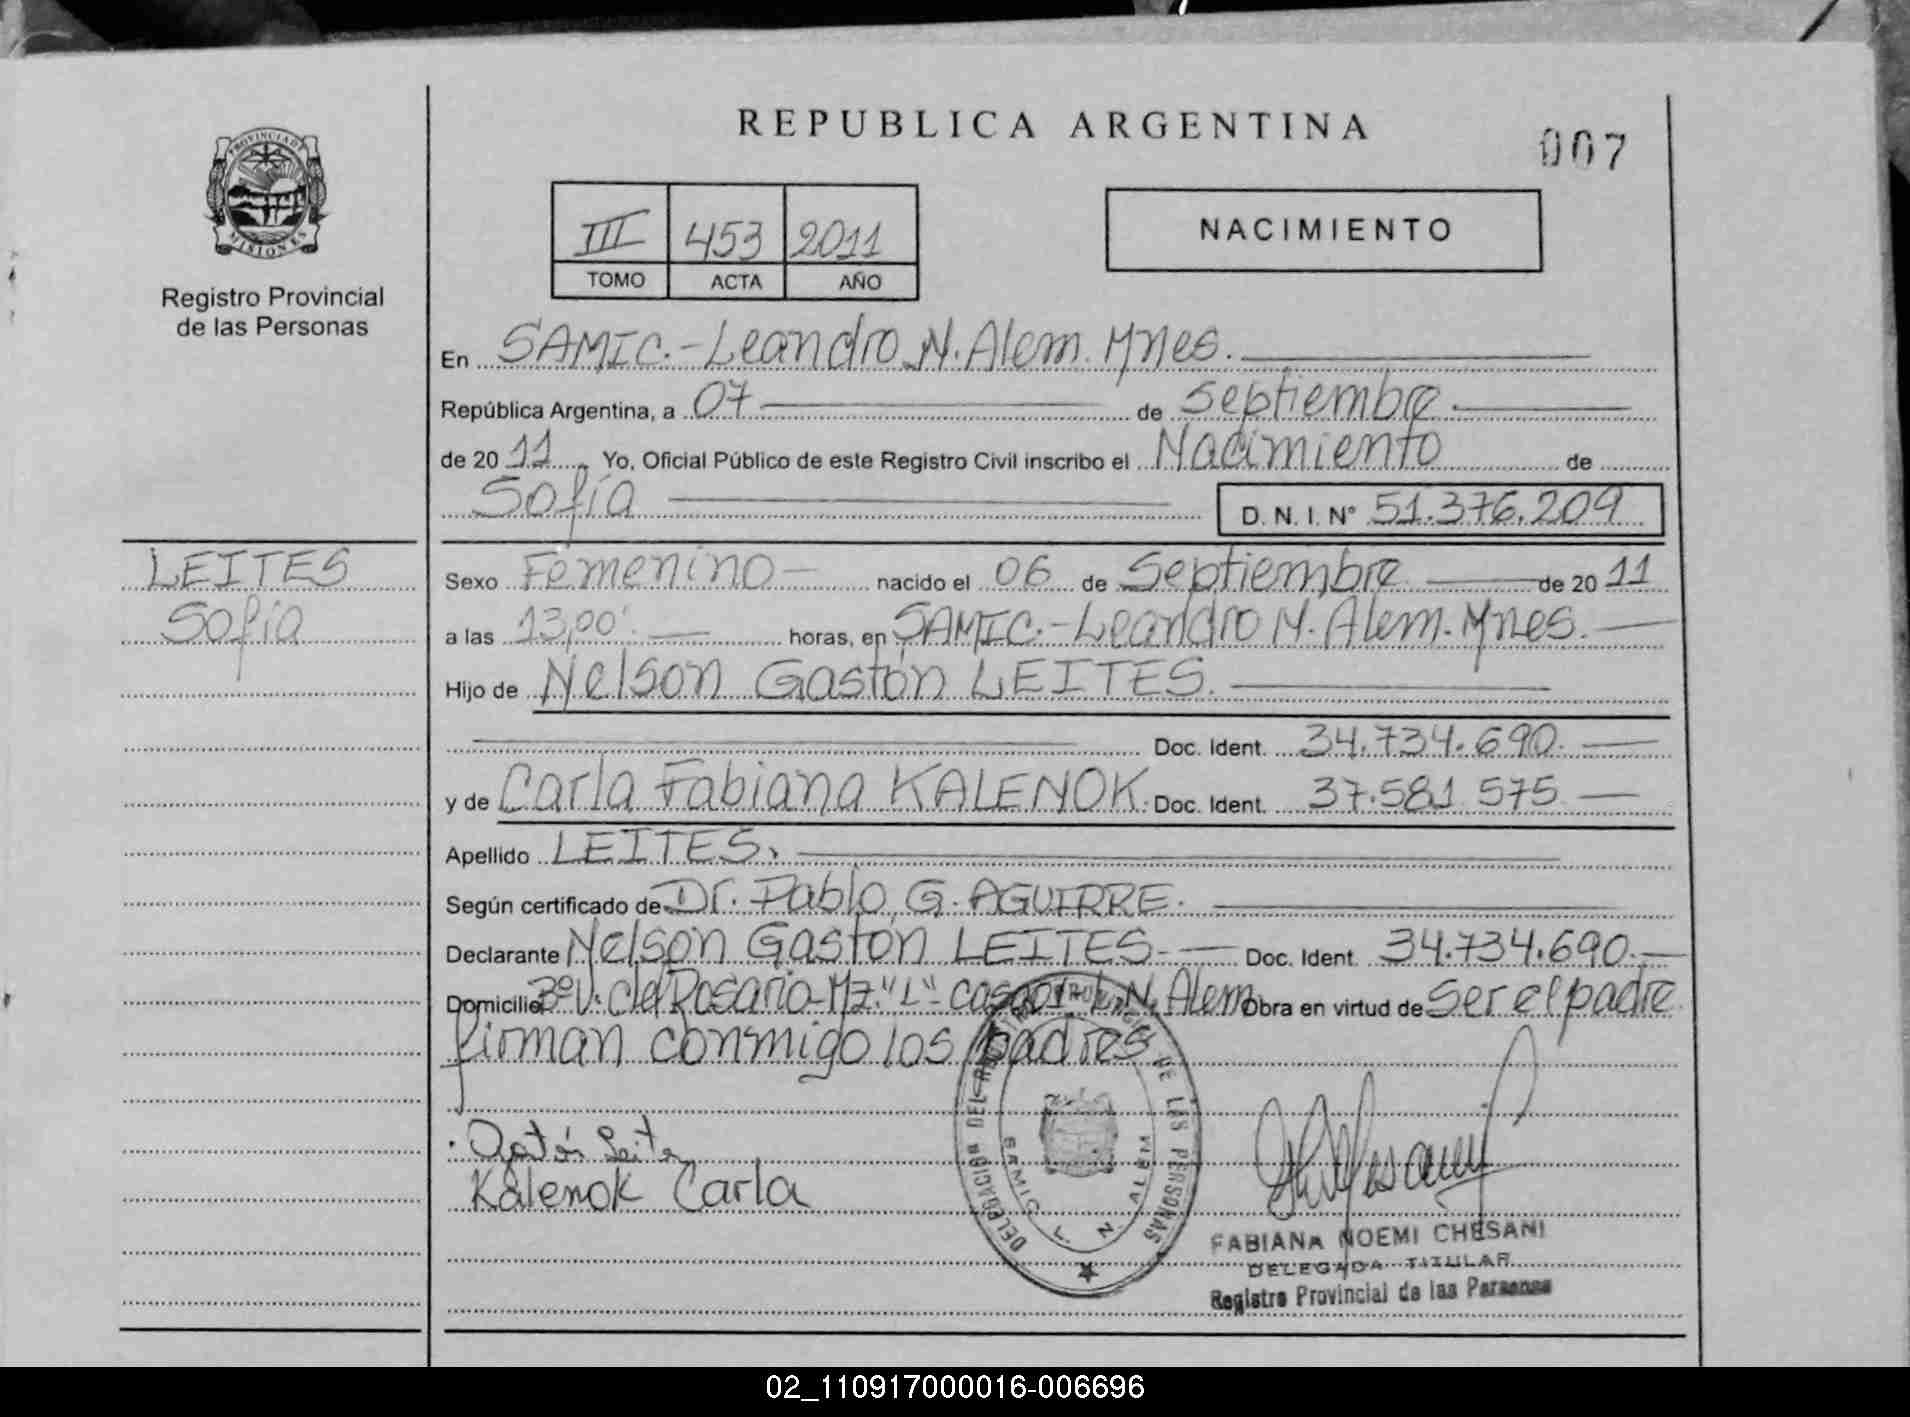 REPUBLICA ARGENTINA
007
PROVINCIA DE
MISIONES
Registro Provincial
de las Personas
III 453 2011
TOMO ACTA AÑO
NACIMIENTO
En SAMIC.-Leandro N. Alem. Mnes.
República Argentina, a 07 de Septiembre
de 2011, Yo, Oficial Público de este Registro Civil inscribo el Nacimiento de
Sofía D. N. I. N° 51.376.209
LEITES
Sofía
Sexo Femenino nacido el 06 de Septiembre de 2011
a las 13,00' horas, en SAMIC.-Leandro N. Alem. Mnes.
Hijo de Nelson Gastón LEITES.
Doc. Ident. 34.734.690.
y de Carla Fabiana KALENOK. Doc. Ident. 37.581.575
Apellido LEITES.
Según certificado de Dr. Pablo G. AGUIRRE.
Declarante Nelson Gastón LEITES.- Doc. Ident. 34.734.690.
Domicilio Bº V. del Rosario-Mz."L"- casa L. N. Alem Obra en virtud de Ser el padre
firman conmigo los padres
Gastón Leites
Kalenok Carla
DELEGACIÓN DEL REGISTRO PROVINCIAL DE LAS PERSONAS
SAMIC L. N. ALEM
FABIANA NOEMI CHESANI
DELEGADA TITULAR
Registro Provincial de las Personas
02_110917000016-006696